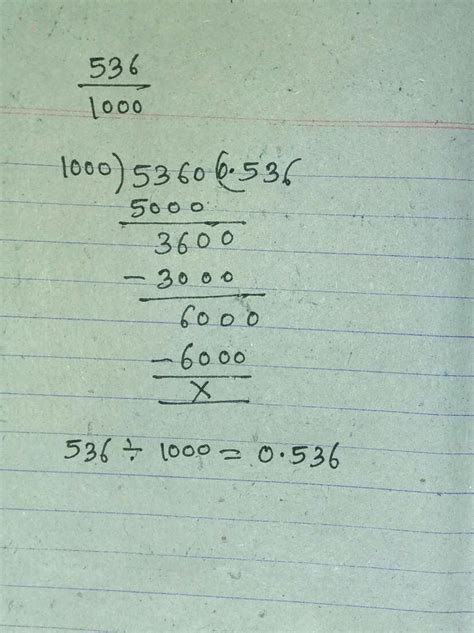 536
1000
1000) 5360 (0.536
5000
3600
- 3000
6000
- 6000
X
536 ÷ 1000 = 0.536